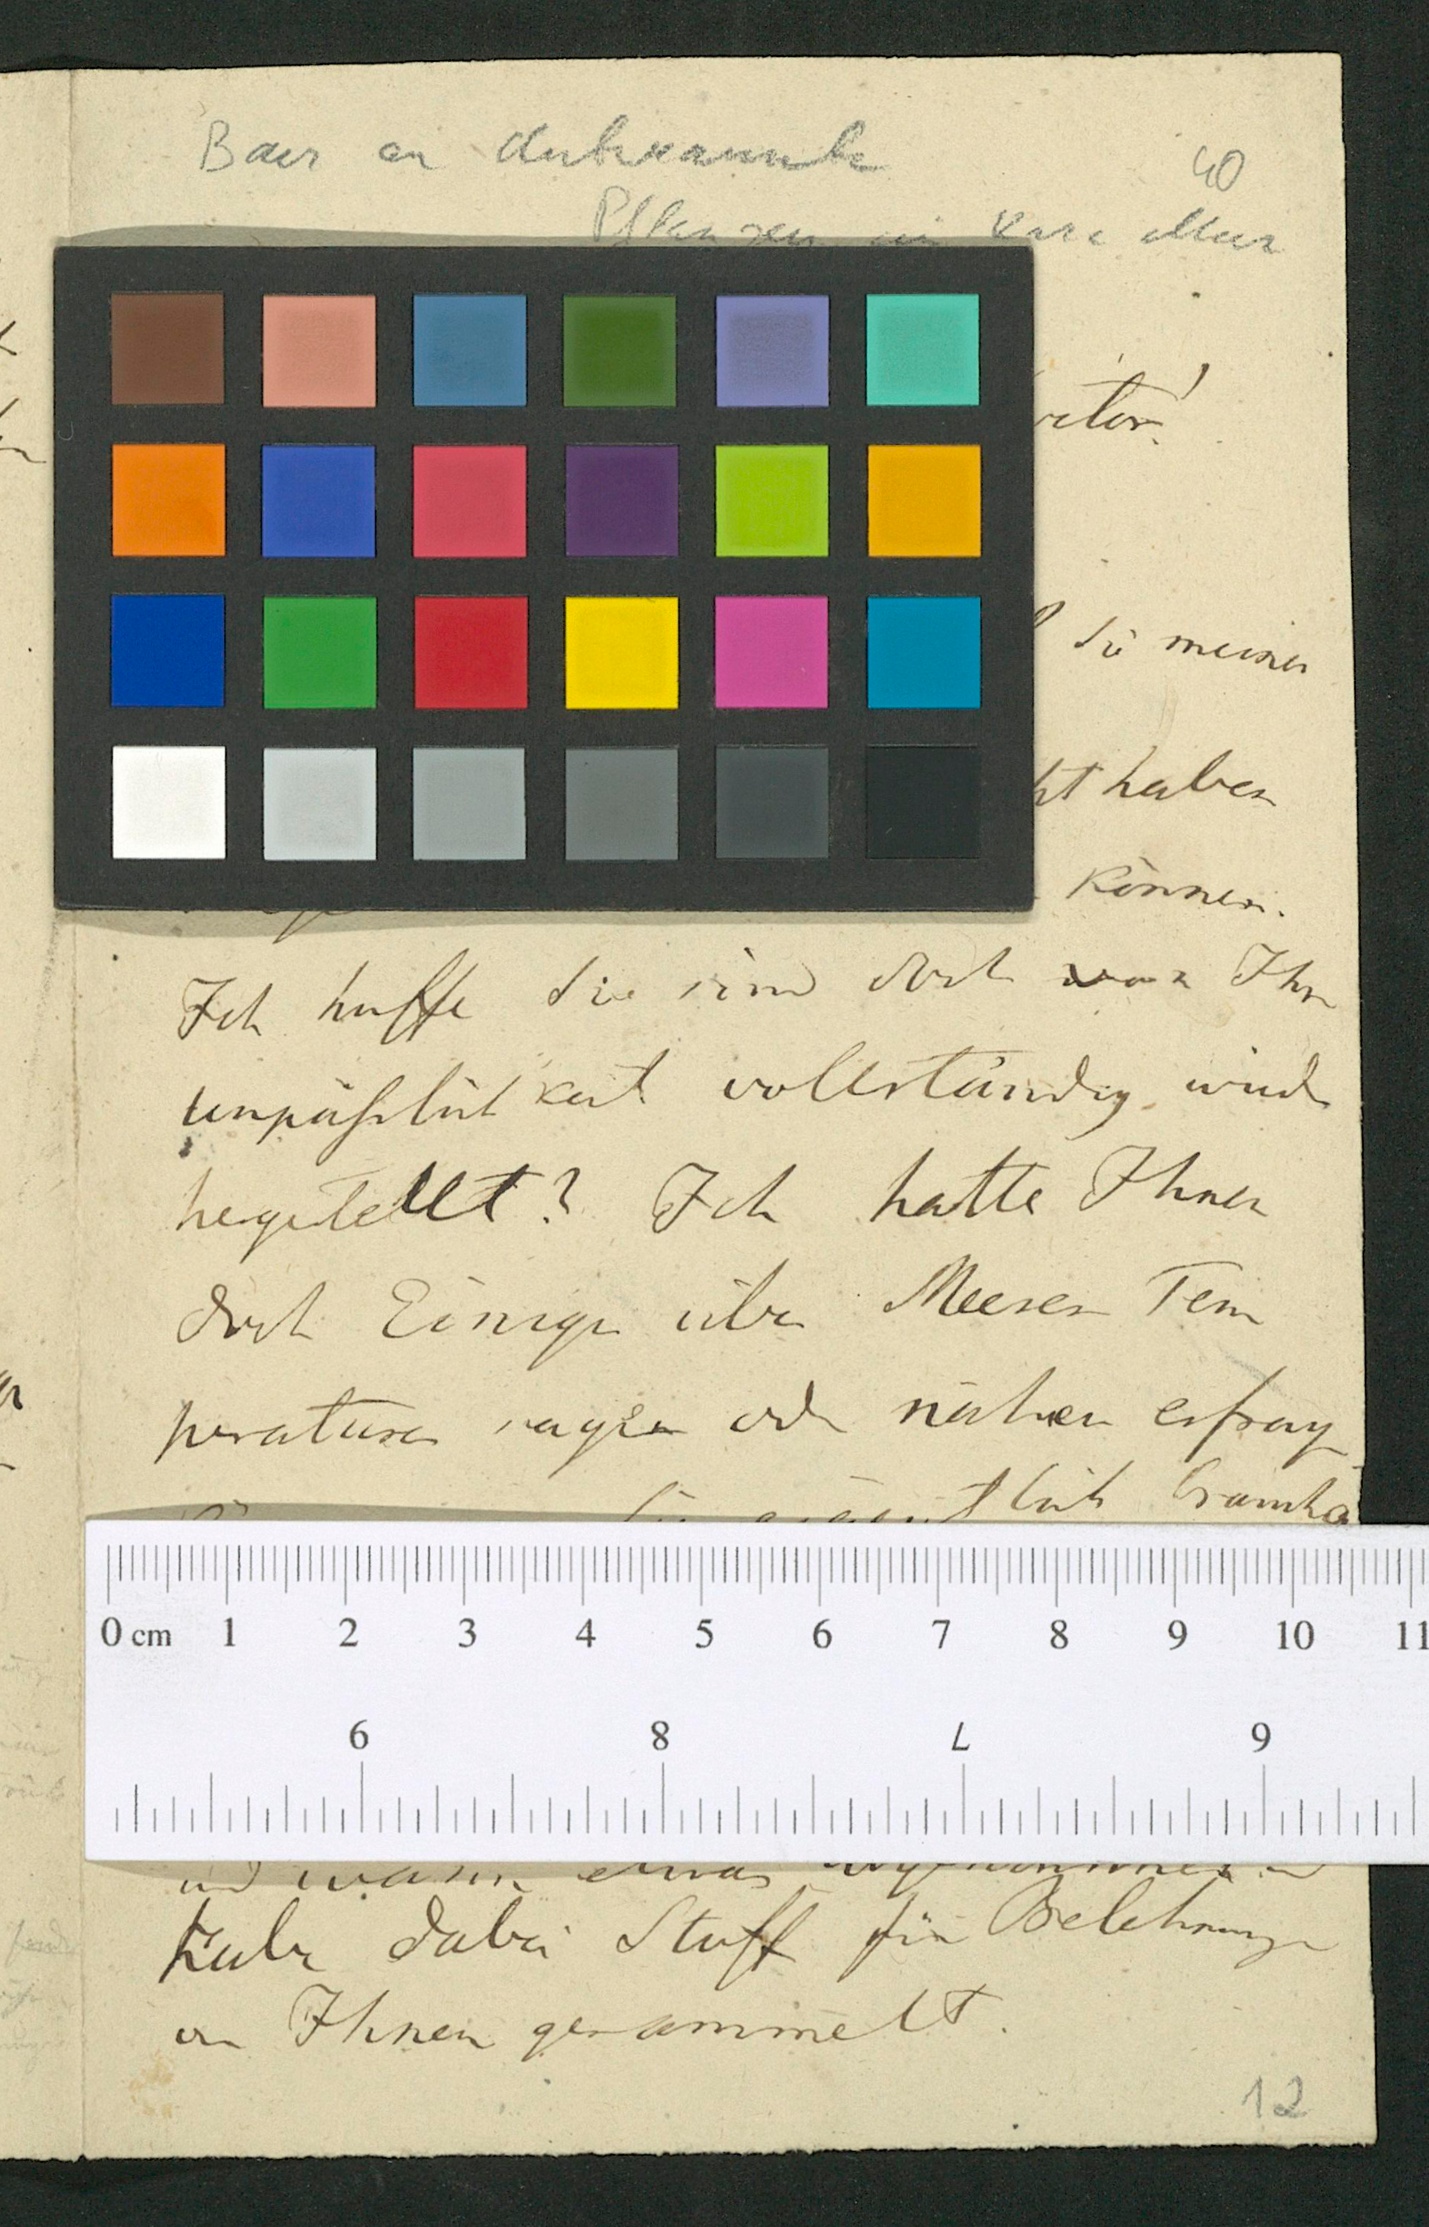 Baer an Unbekannte
40
Pflanzen im Kara Meer
Sie meiner
haben
können.
Ich hoffe Sie sind doch von Ihr
unpäßlichkeit vollständig wied
hergestellt? Ich hatte Ihnen
doch Einiges über Meeres Tem
peraturen sagen oder näher erfrag
lich
0 cm 1 2 3 4 5 6 7 8 9 10 11
6 8 7 9
und wann etwas
habe dabei Stoff für Belehrung
von Ihnen gesammelt.
12